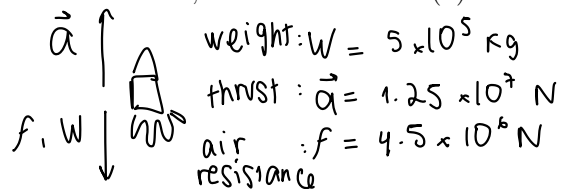 a⃗
f, W
weight: W = 5 × 10⁵ kg
thrust : a⃗ = 1.25 × 10⁷ N
air resistance : f = 4.5 × 10⁶ N